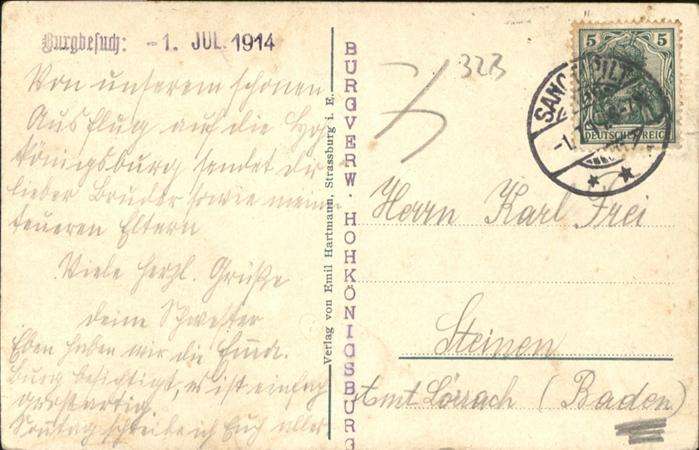 Burgbesuch: -1. JUL. 1914
Von unserem schönen
Ausflug auf die Hoh
königsburg sendet dir
lieber Bruder sowie meinen
teueren Eltern
Viele herzl. Grüße
deine Schwester
Eben haben wir die
Burg besichtigt, es ist einfach
grossartig
Sonntag schreibe ich Euch alles
Verlag von Emil Hartmann, Strassburg i. E.
BURGVERW. HOHKÖNIGSBURG
32B
5 5
DEUTSCHES REICH
SANCT PILT
-1.
Herrn Karl Frei
Steinen
Amt Lörrach (Baden)